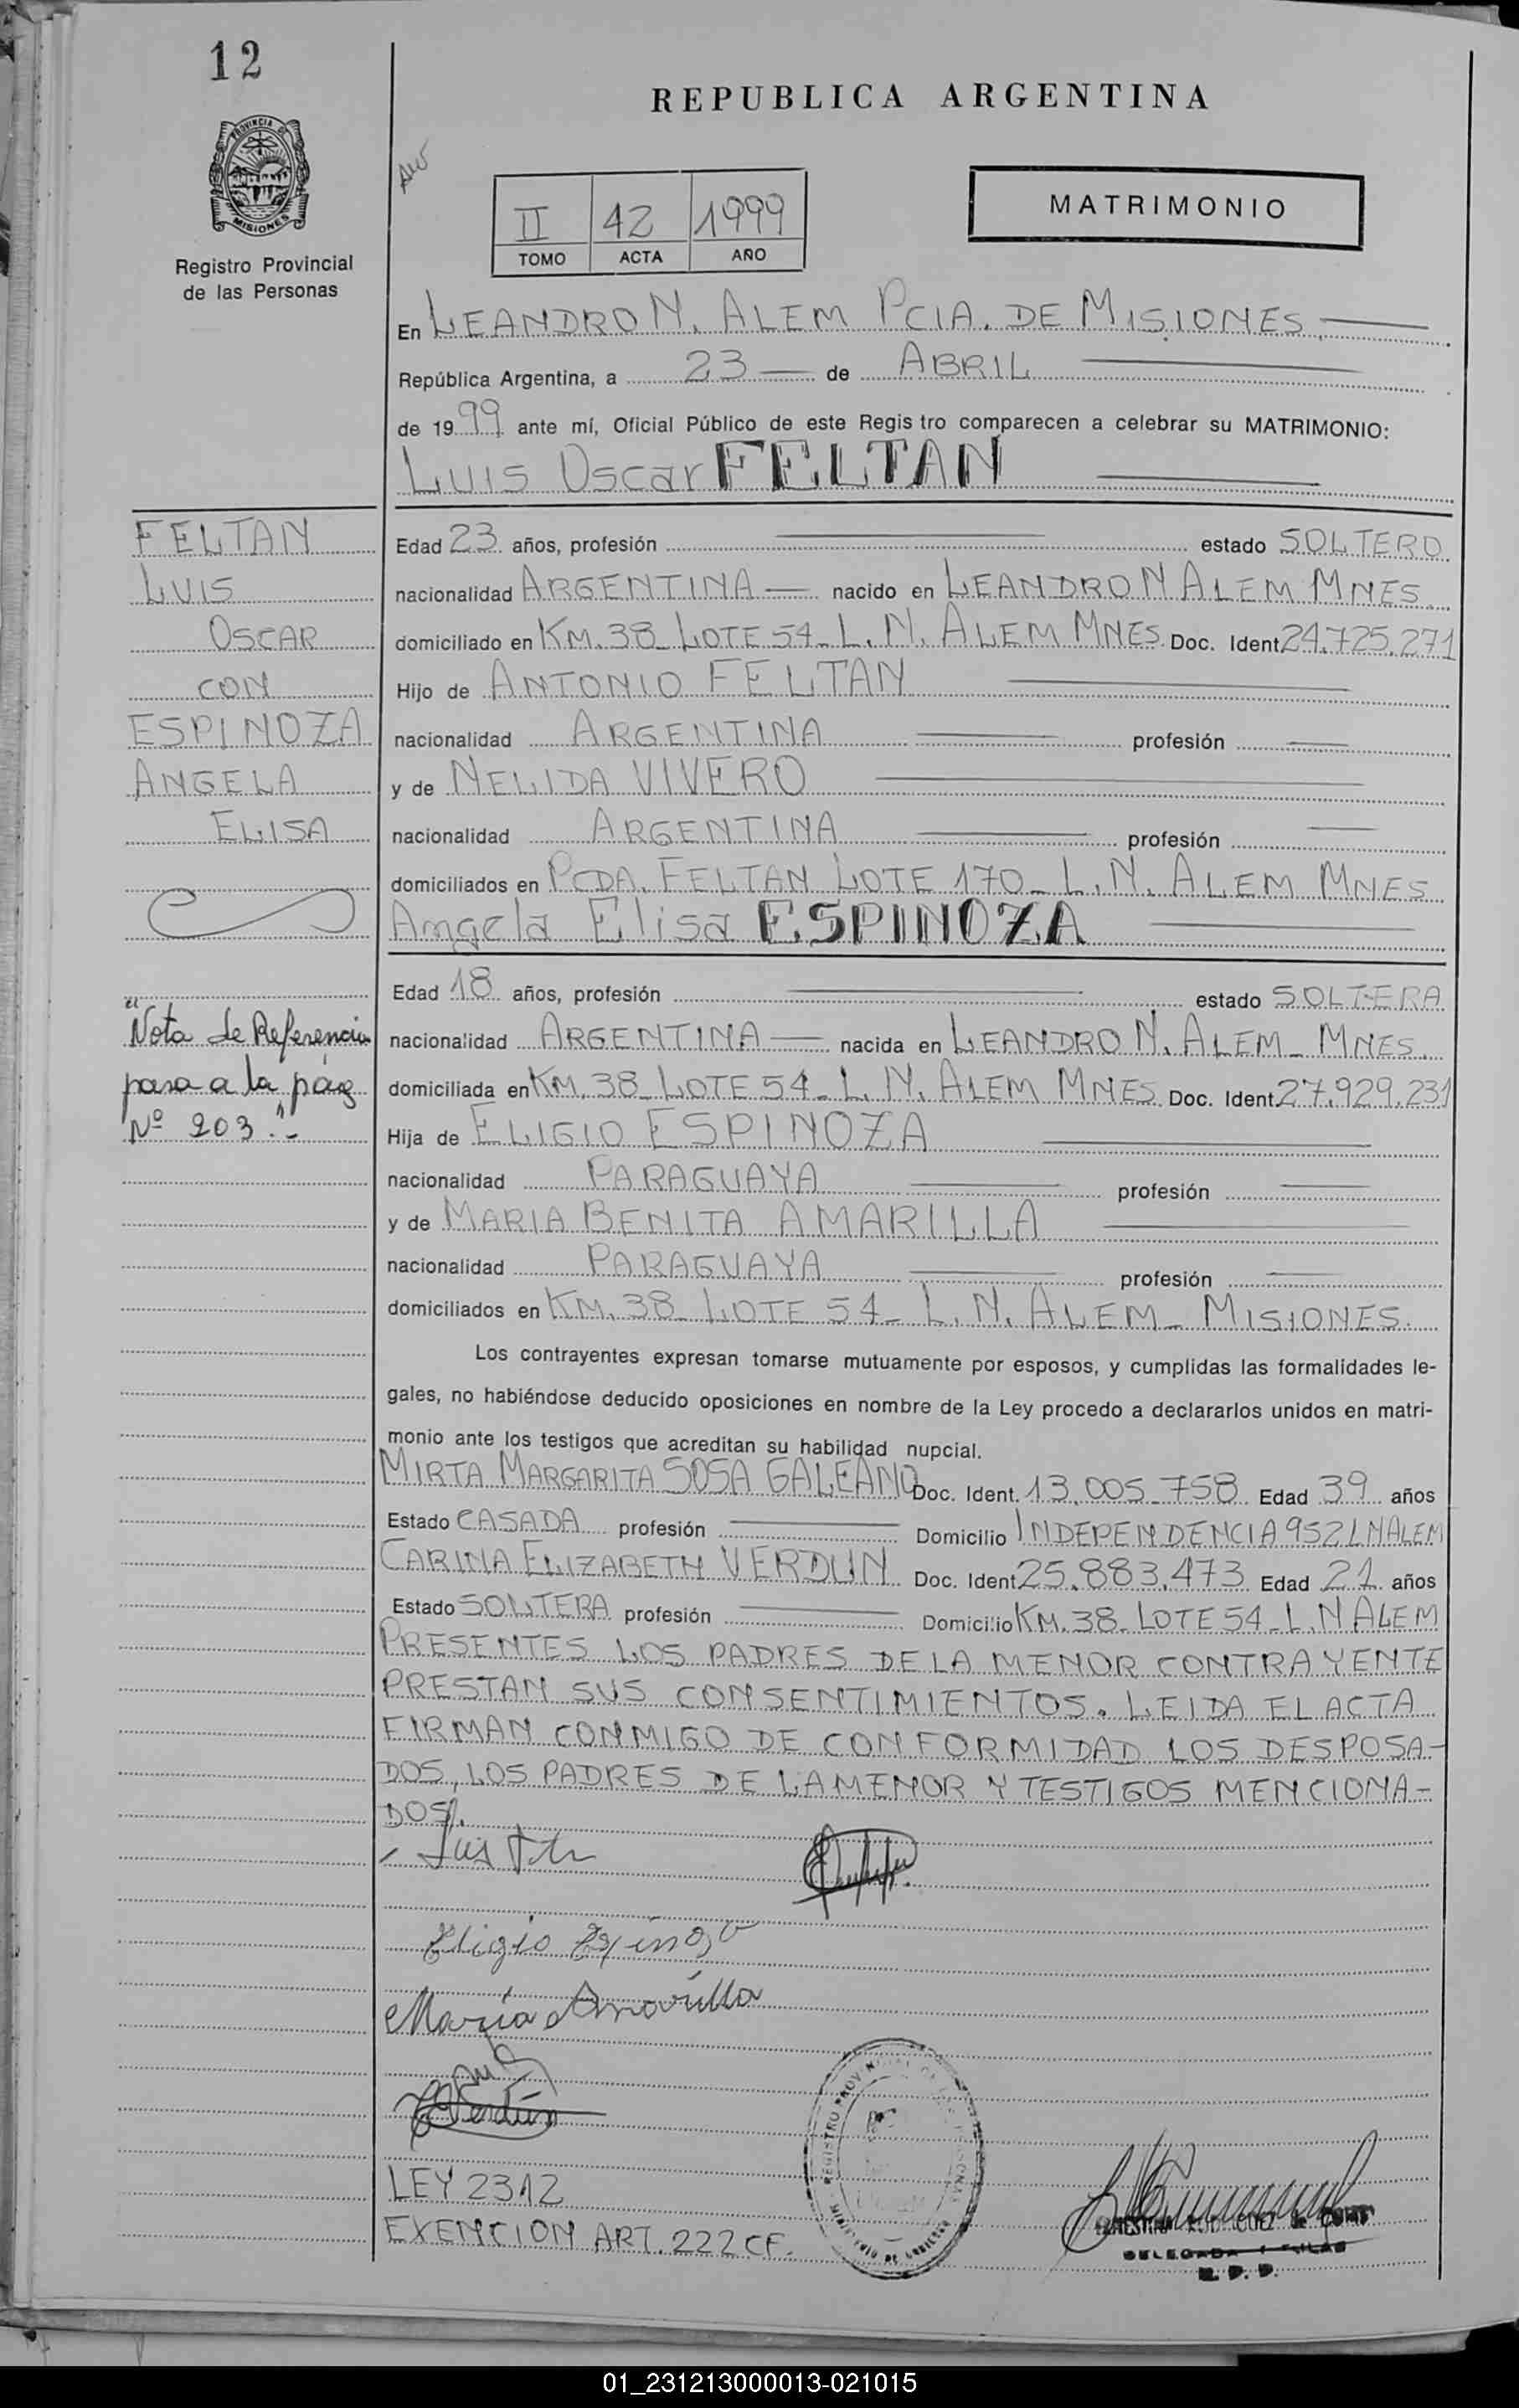 12
REPUBLICA ARGENTINA
PROVINCIA DE
MISIONES
Registro Provincial
de las Personas
II 42 1999
TOMO ACTA AÑO
MATRIMONIO
En LEANDRO N. ALEM PCIA. DE MISIONES
República Argentina, a 23 de ABRIL
de 1999 ante mí, Oficial Público de este Regis tro comparecen a celebrar su MATRIMONIO:
Luis Oscar FELTAN
FELTAN
LUIS
OSCAR
CON
ESPINOZA
ANGELA
ELISA
Edad 23 años, profesión estado SOLTERO
nacionalidad ARGENTINA nacido en LEANDRO N ALEM MNES.
domiciliado en KM. 38 LOTE 54 - L. N. ALEM MNES. Doc. Ident. 24.725.271
Hijo de ANTONIO FELTAN
nacionalidad ARGENTINA profesión
y de NELIDA VIVERO
nacionalidad ARGENTINA profesión
domiciliados en PCDA. FELTAN LOTE 170 - L. N. ALEM MNES
Angela Elisa ESPINOZA
"Nota de Referencia
pasa a la pág
Nº 203".-
Edad 18 años, profesión estado SOLTERA
nacionalidad ARGENTINA nacida en LEANDRO N. ALEM - MNES.
domiciliada en KM. 38 - LOTE 54 - L. N. ALEM MNES. Doc. Ident. 27.929.231
Hija de ELIGIO ESPINOZA
nacionalidad PARAGUAYA profesión
y de MARIA BENITA AMARILLA
nacionalidad PARAGUAYA profesión
domiciliados en KM. 38 - LOTE 54 - L. N. ALEM - MISIONES.
Los contrayentes expresan tomarse mutuamente por esposos, y cumplidas las formalidades le-
gales, no habiéndose deducido oposiciones en nombre de la Ley procedo a declararlos unidos en matri-
monio ante los testigos que acreditan su habilidad nupcial.
MIRTA MARGARITA SOSA GALEANO Doc. Ident. 13.005.758 Edad 39 años
Estado CASADA profesión Domicilio INDEPENDENCIA 952 LNALEM
CARINA ELIZABETH VERDUN Doc. Ident. 25.883.473 Edad 21 años
Estado SOLTERA profesión Domicilio KM. 38 - LOTE 54 - L. N ALEM
PRESENTES LOS PADRES DE LA MENOR CONTRAYENTE
PRESTAN SUS CONSENTIMIENTOS. LEIDA EL ACTA
FIRMAN CONMIGO DE CONFORMIDAD LOS DESPOSA-
DOS, LOS PADRES DE LA MENOR Y TESTIGOS MENCIONA-
DOS.
Luis
Eligio Espinoza
Maria Amarilla
Verdún
REGISTRO PROVINCIAL DE LAS PERSONAS
MINISTERIO DE GOBIERNO
LEY 2312
EXENCION ART. 222 CF.
RODRIGUEZ de
DELEGADA TITULAR
R. P. P.
01_231213000013-021015